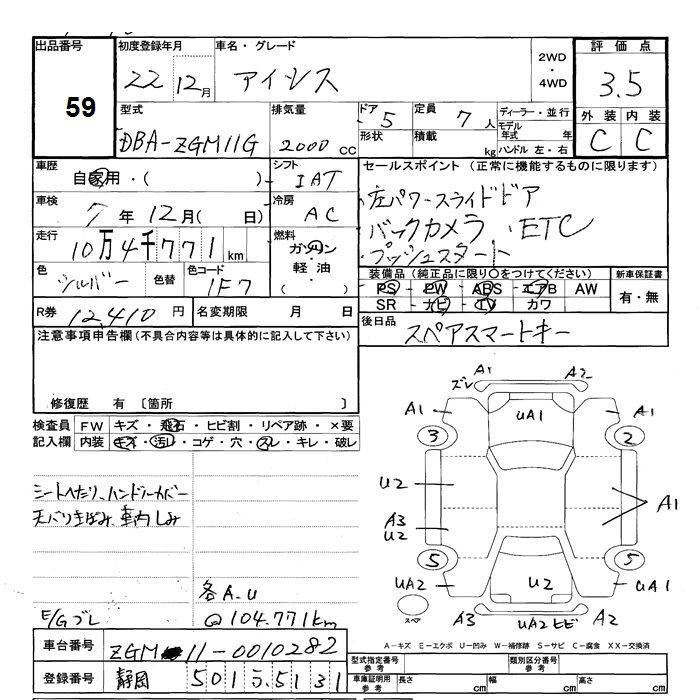 出品番号
59
初度登録年月
22 12月
車名・グレード
アイシス
2WD
・
4WD
評価点
3.5
外装 内装
C C
型式
DBA-ZGM11G
排気量
2000 CC
ドア 5
形状
定員 7 人
積載 kg
ディーラー・並行
モデル年式 年
ハンドル 左・右
車歴
自家用・( )
シフト
IAT
セールスポイント(正常に機能するものに限ります)
左パワースライドドア
バックカメラ、ETC
プッシュスタート
車検
7年12月( 日)
冷房
AC
走行
10万4千771km
燃料
ガソリン
・
軽油
色
シルバー
色替
色コード
1F7
装備品(純正品に限り〇をつけてください)
PS PW ABS エアB AW
SR ナビ TV カワ
新車保証書
有・無
R券 12,410円
名変期限 月 日
後日品
スペアスマートキー
注意事項申告欄(不具合内容等は具体的に記入して下さい)
修復歴 有 〔箇所 〕
検査員記入欄
FW キズ・飛石・ヒビ割・リペア跡・×要
内装 キズ・汚れ・コゲ・穴・スレ・キレ・破レ
シートへたり、ハンドルカバー
天バリきばみ、車内しみ
各A.U
E/Gブレ
@104.771km
ズレ A1 A2
A1 UA1 A1
3 2
U2 A1
A3
U2
5 5
UA2 U2 UA1
スペア A3 UA2ヒビ A2
A-キズ E-エクボ U-凹み W-補修跡 S-サビ C-腐食 XX-交換済
車台番号
ZGM 11-0010282
登録番号
静岡 501 ら 5131
型式指定番号
参考
類別区分番号
参考
車庫証明用
参考
長さ cm
幅 cm
高さ cm